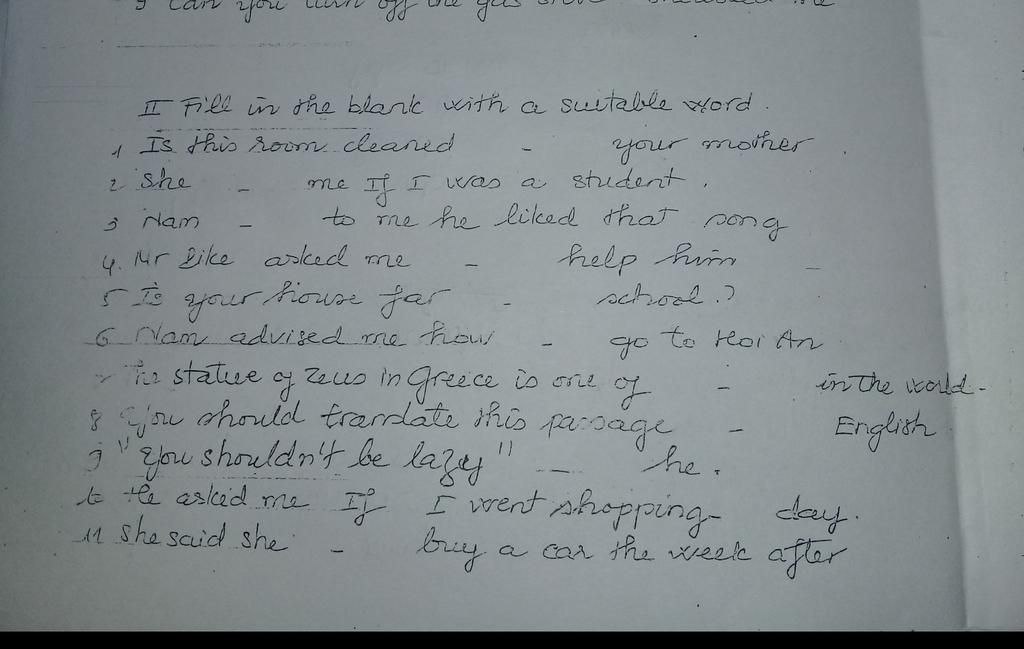 9 Can you turn off the gas
II Fill in the blank with a suitable word.
1 Is this room cleaned - your mother.
2 She - me If I was a student.
3 Nam - to me he liked that song
4. Mr Bike asked me - help him -
5 Is your house far - school.?
6 Nam advised me how - go to Hoi An
The statue of Zeus in Greece is one of - in the world-
8 You should translate this passage - English
9 "You shouldn't be lazy" - he.
10 He asked me If I went shopping - day.
11 She said she - buy a car the week after